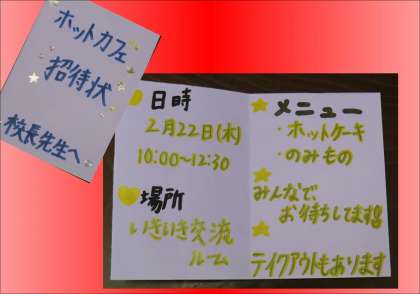 ホットカフェ
招待状
校長先生へ
日時
2月22日(木)
10:00〜12:30
場所
いきいき交流
ルーム
メニュー
・ホットケーキ
・のみもの
みんなで、
お待ちしてます!!
テイクアウトもあります